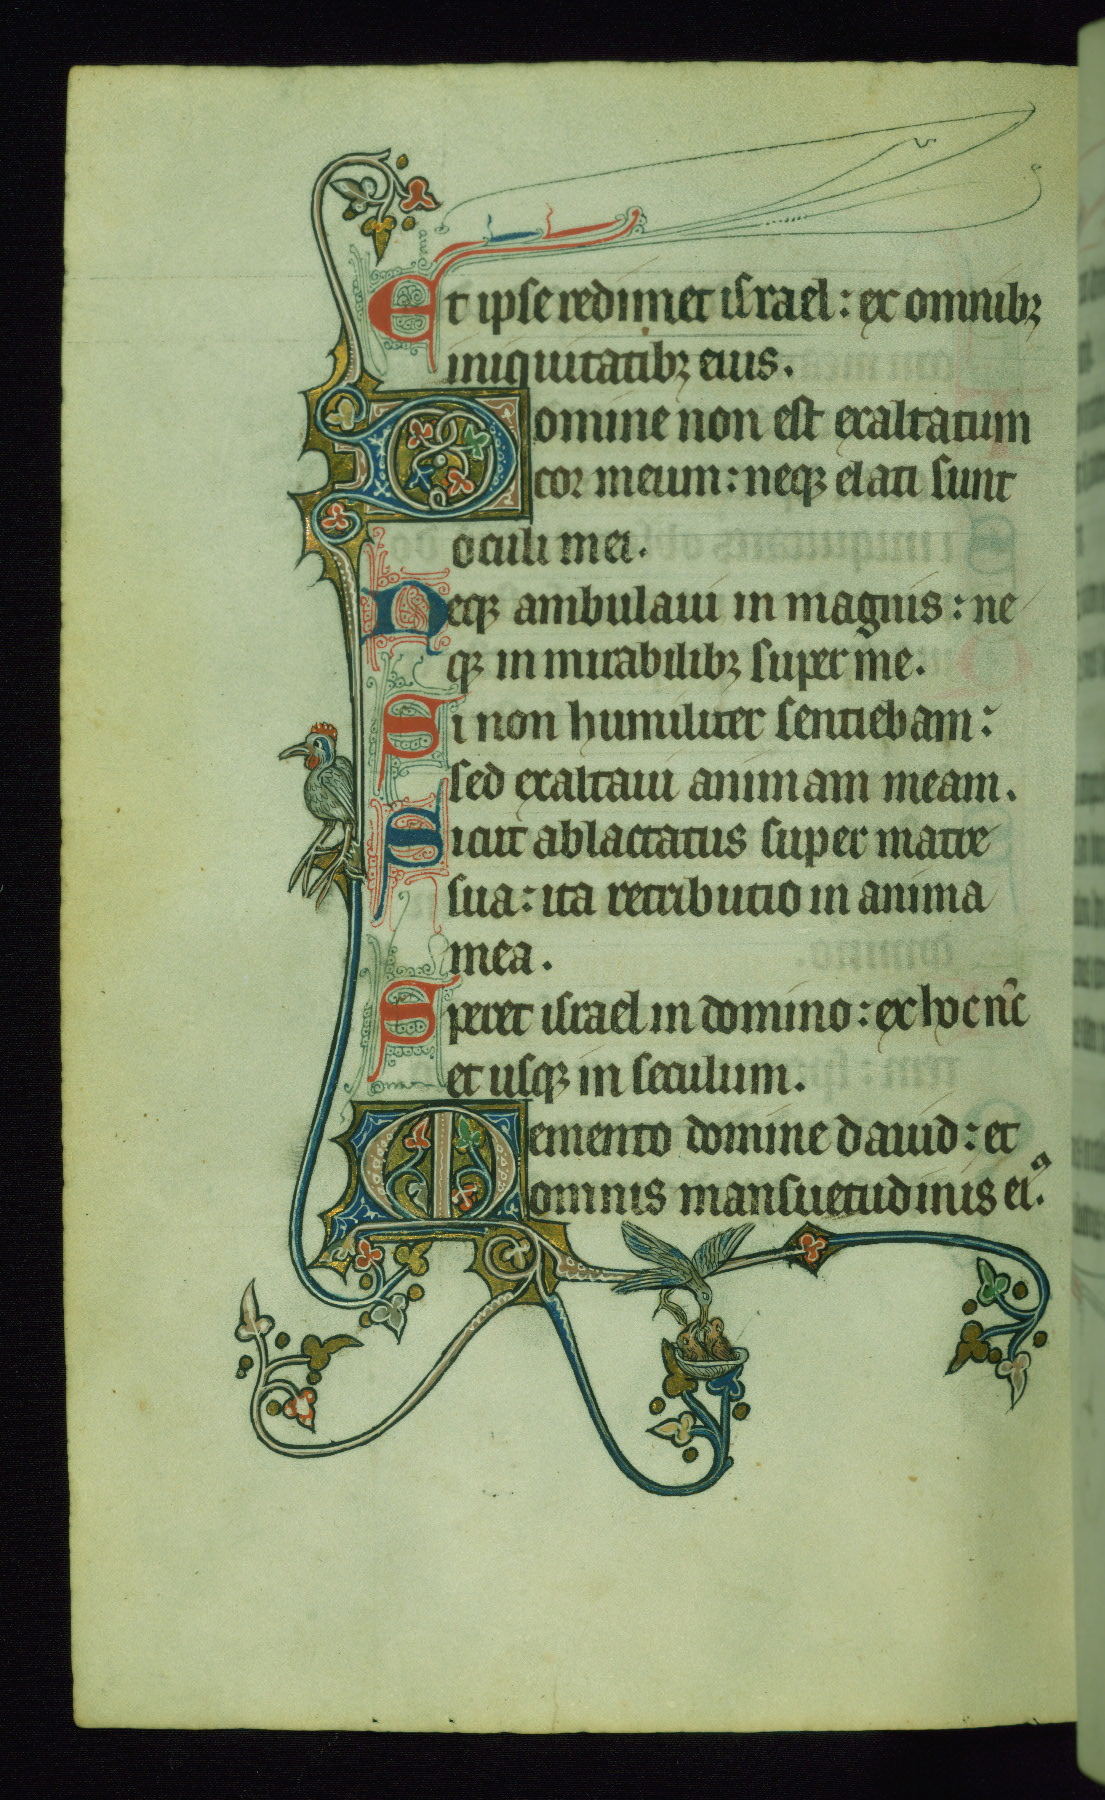 Et ipse redimet israel : ex omnibꝫ
iniquitatibꝫ eius .
Domine non est exaltatum
cor meum : neqꝫ elati sunt
oculi mei .
Neqꝫ ambulaui in magnis : ne
qꝫ in mirabilibꝫ super me .
Si non humiliter sentiebam :
sed exaltaui animam meam .
Sicut ablactatus super matre
sua : ita retributio in anima
mea .
Speret israel in domino : ex hoc nūc
et usqꝫ in seculum .
Memento domine dauid : et
omnis mansuetudinis eiꝰ .